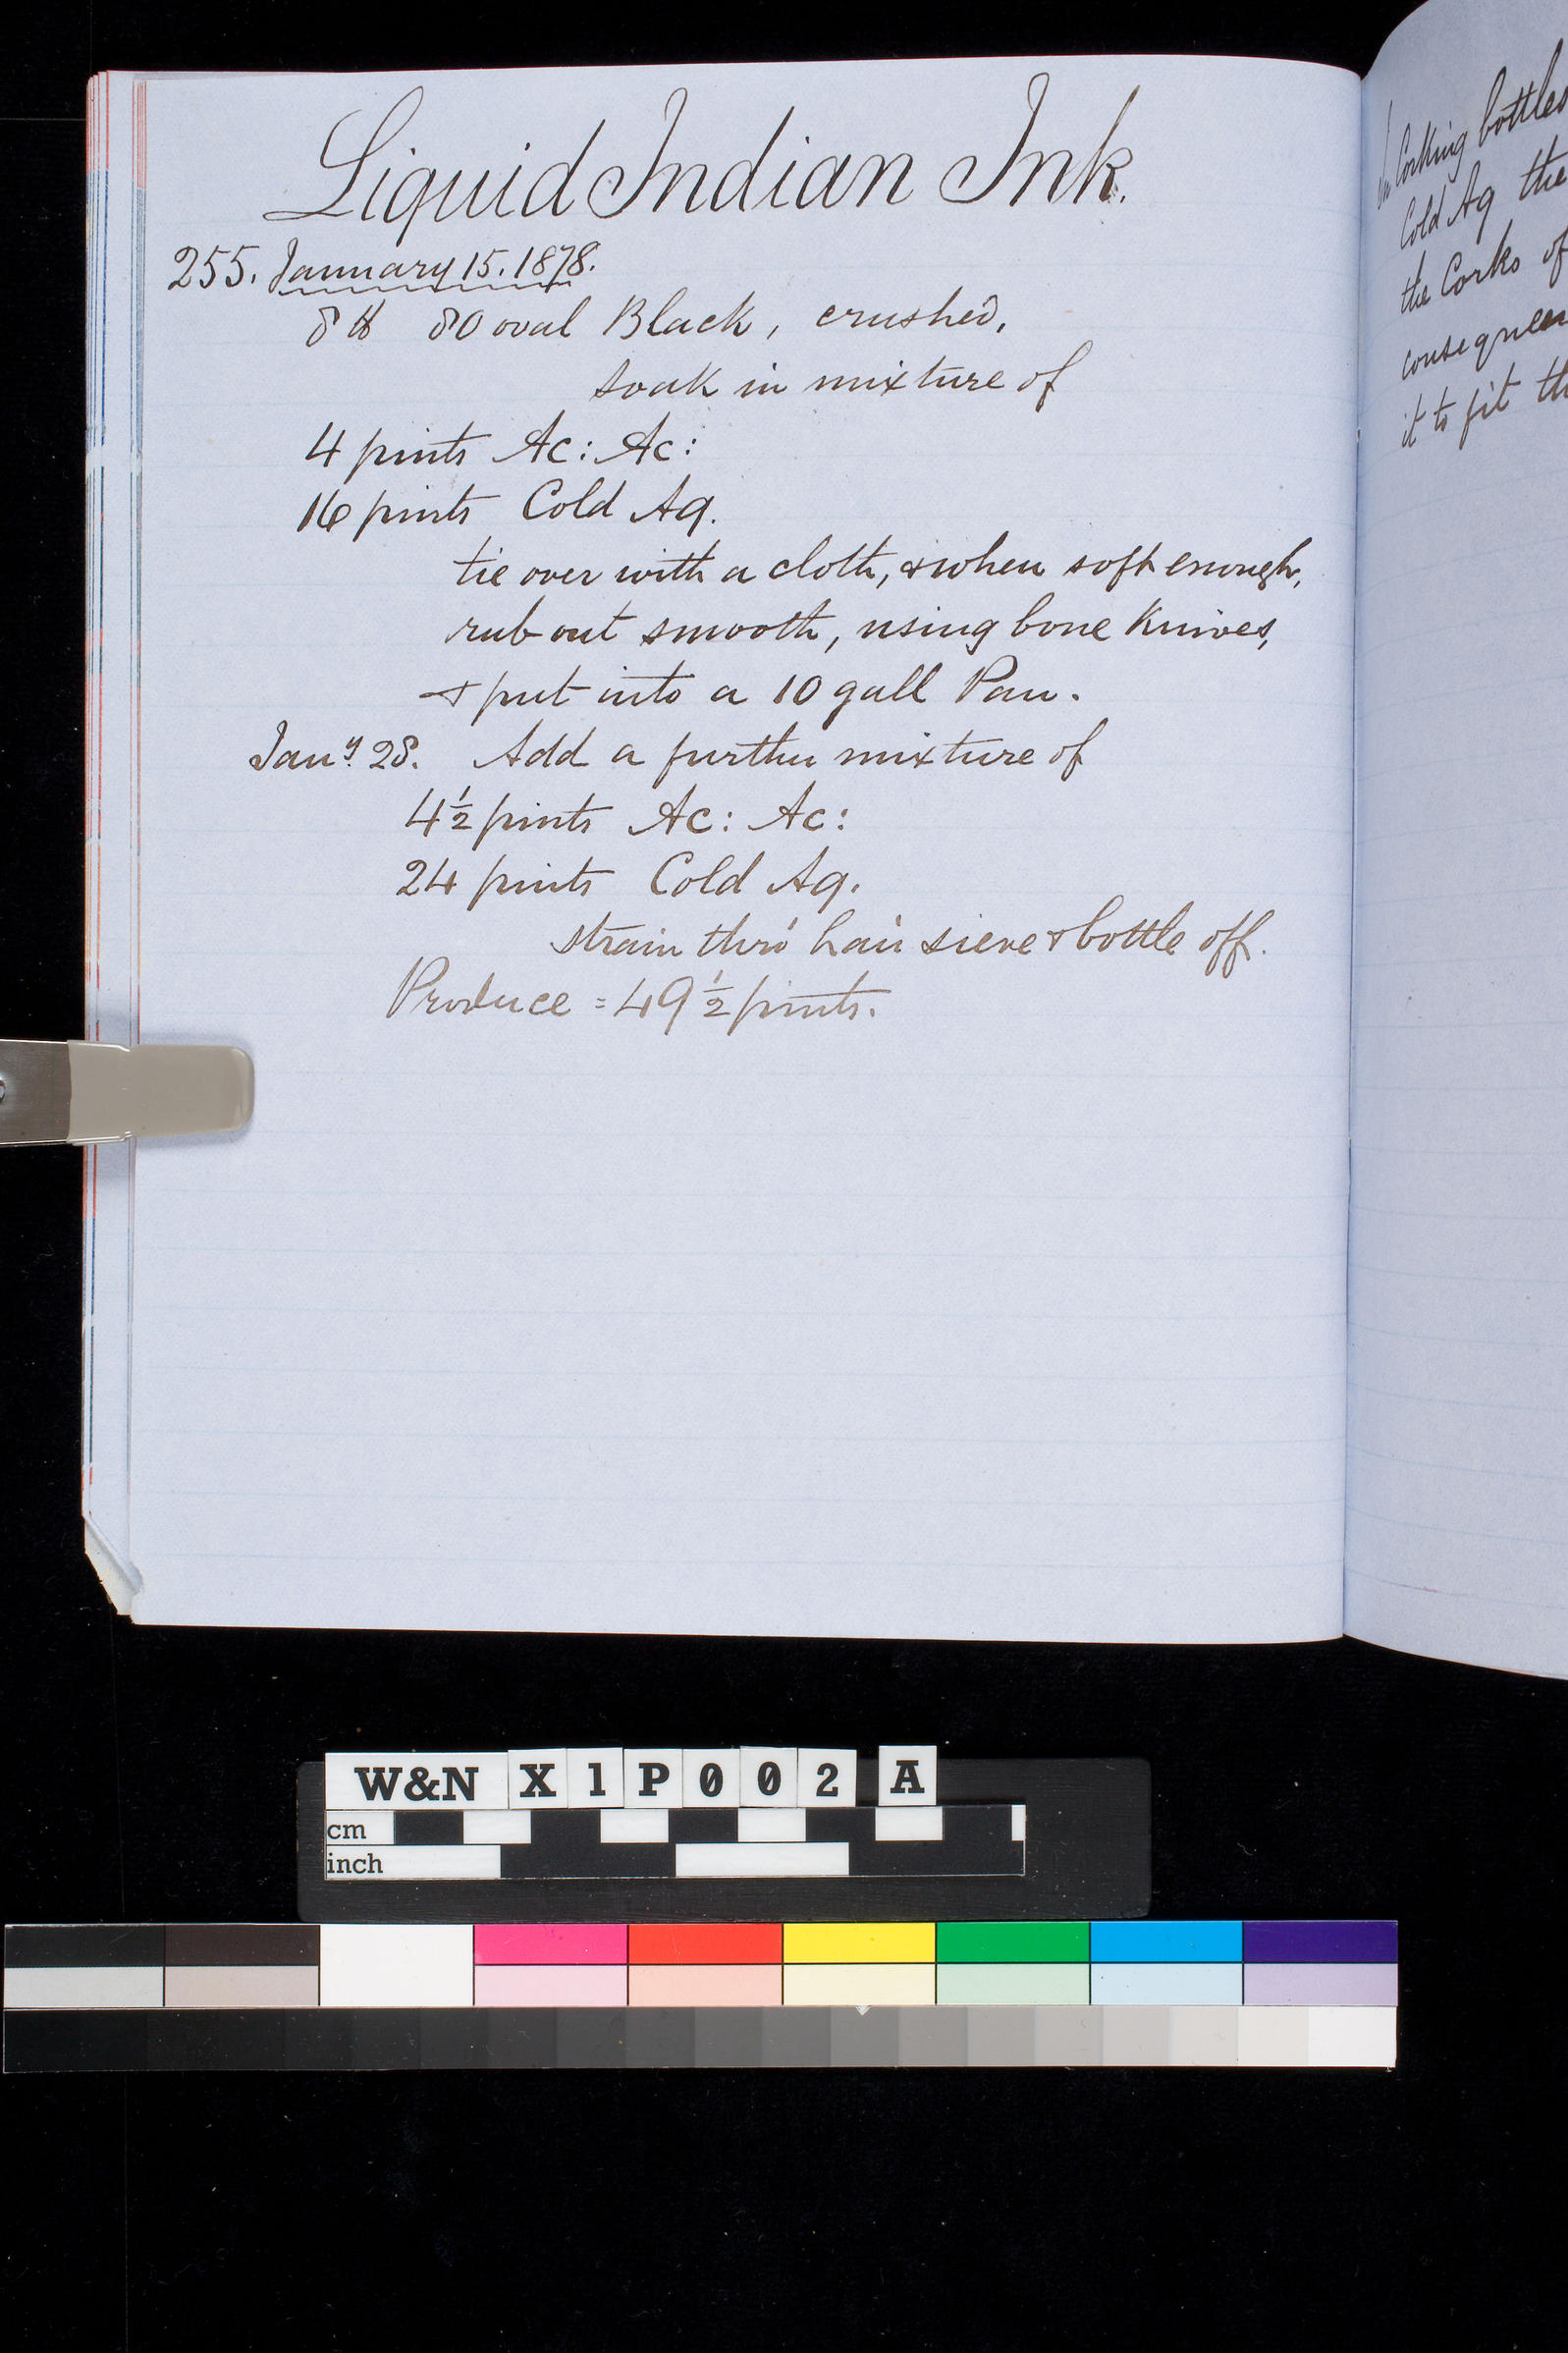 Liquid Indian Ink.
255. January 15. 1878.
8 ℔ 80 oval Black, crushed,
soak in mixture of
4 pints Ac: Ac:
16 pints Cold Aq.
tie over with a cloth, & when soft enough,
rub out smooth, using bone Knives,
& put into a 10 gall Pan.
Jany. 28. Add a further mixture of
4½ pints Ac: Ac:
24 pints Cold Aq.
strain thro' hair sieve & bottle off.
Produce = 49½ pints.
In Corking bottles
Cold Aq the
the Corks of
it to fit th
W&N X1P002 A
cm
inch